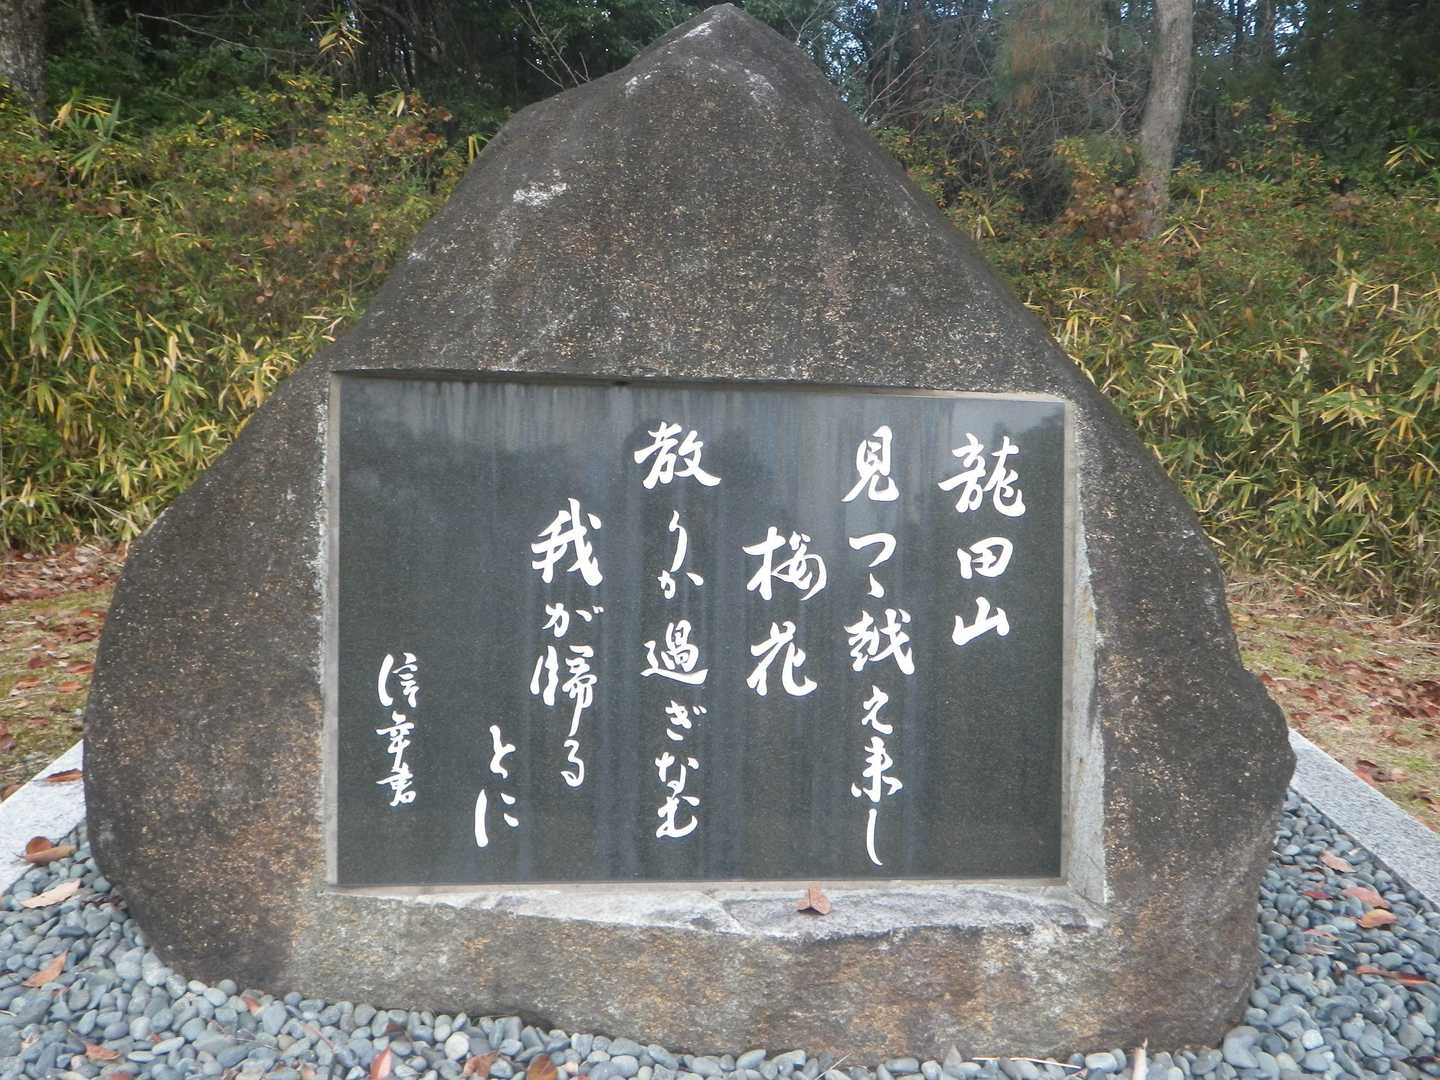 龍田山
見つゝ越え来し
桜花
散りか過ぎなむ
我が帰る
とに
信幸書